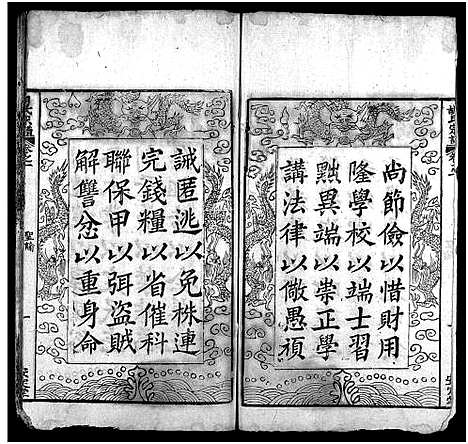 尚節儉以惜財用
隆學校以端士習
黜異端以崇正學
講法律以儆愚頑
誡匿逃以免株連
完錢糧以省催科
聯保甲以弭盜賊
解讐忿以重身命
聖諭
一